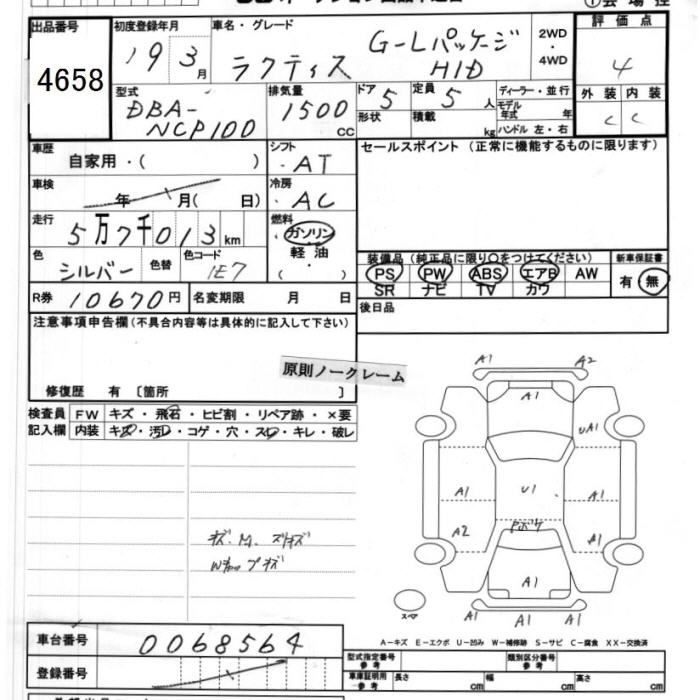 ① 会 場 控
出品番号
4658
初度登録年月
19 3月
車名・グレード
ラクティス G-Lパッケージ HID
2WD
・
4WD
評 価 点
4
外 装 内 装
C C
型式
DBA-
NCP100
排気量
1500 cc
ドア 5
定員 5 人
形状
積載 kg
ディーラー・並 行
モデル
年式 年
ハンドル 左・右
車歴
自家用・( )
シフト
・AT
車検
年 月( 日)
冷房
・AC
走行
5万7千013km
燃料
・ガソリン
軽 油
・
( )
色
シルバー
色替
色コード
1E7
R券 10670円
名変期限 月 日
セールスポイント (正常に機能するものに限ります)
装備品 (純正品に限り○をつけてください)
PS PW ABS エアB AW
SR ナビ TV カワ
新車保証書
有 無
後日品
注意事項申告欄(不具合内容等は具体的に記入して下さい)
原則ノークレーム
修復歴 有 〔箇所 〕
検査員
記入欄
FW キズ・飛石・ヒビ割・リペア跡・×要
内装 キズ・汚レ・コゲ・穴・スレ・キレ・破レ
A1 A2
A1
UA1
A1 U1 A1
A2 A1
A1
A1 A1 A1
スペア
A-キズ E-エクボ U-凹み W-補修跡 S-サビ C-腐食 XX-交換済
車台番号
0068564
登録番号
型式指定番号
参考
類別区分番号
参考
車庫証明用
参考
長さ cm 幅 cm 高さ cm